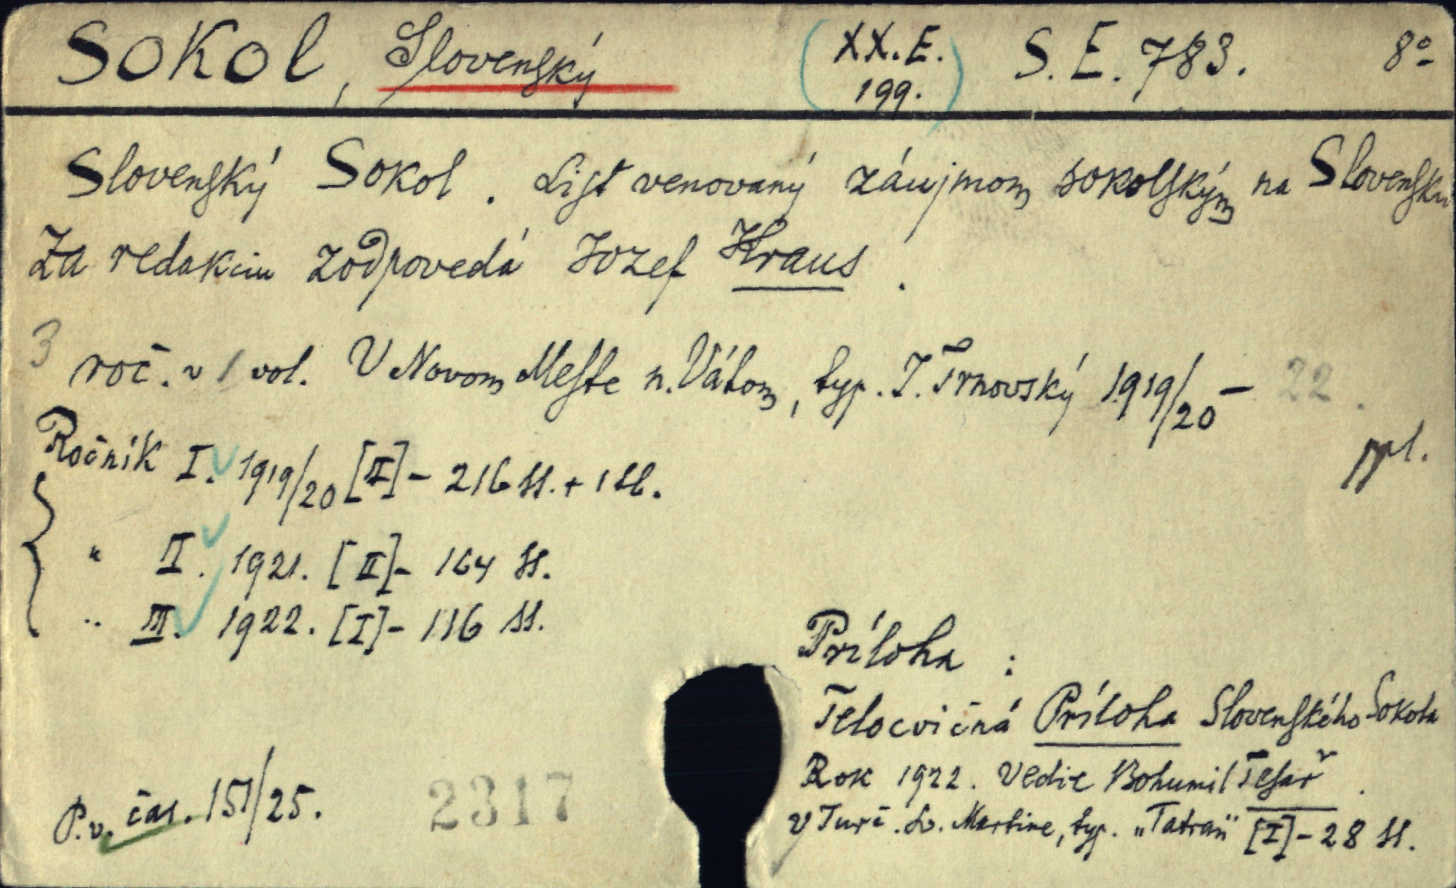 Sokol, Slovenský (XX.E. 199.) S.E. 783. 8º
Slovenský Sokol. List venovaný záujmom sokolským na Slovensku
Za redakciu zodpovedá Jozef Kraus.
3 roč. v 1 vol. V Novom Meste n. Váhom, typ. J. Trnovský 1919/20 – 22.
ppl.
Ročník I. 1919/20 [II] – 216 ss. + 1 sl.
" II. 1921. [II] – 164 ss.
" III. 1922. [I] – 116 ss.
Príloha :
Telocvičná Príloha Slovenského Sokola
Rok 1922. Vedie Bohumil Tesař.
v Turč. Sv. Martine, typ. „Tatran" [I] – 28 ss.
P.v. čas. 151/25.
2317